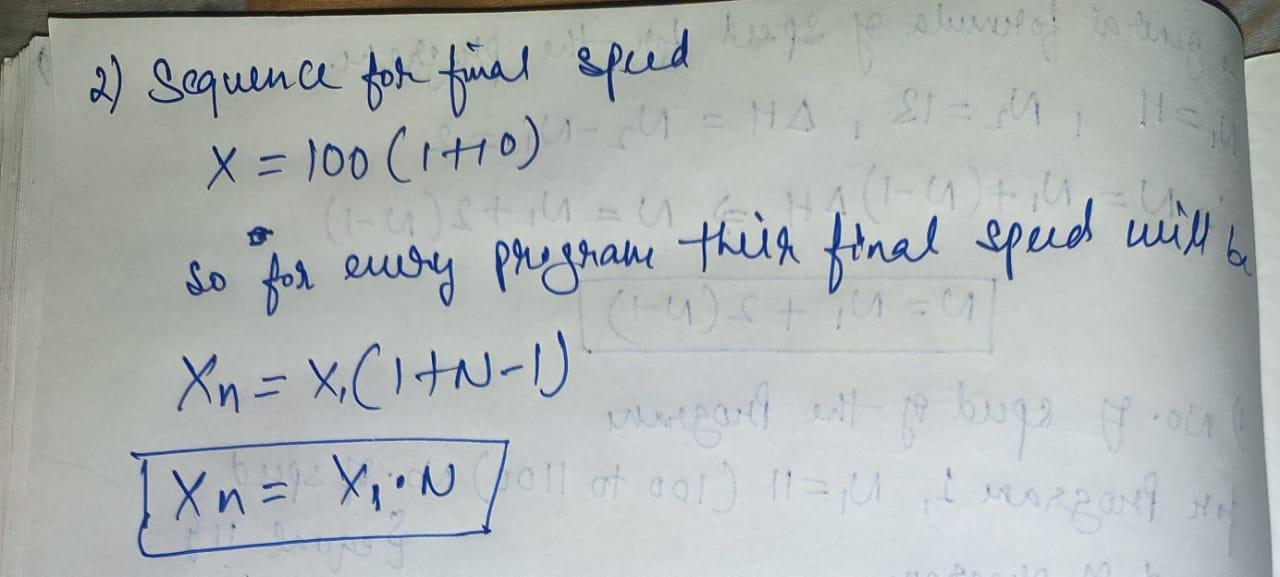 2) Sequence for final speed
X = 100 (1+10)
So for every program their final speed will be
Xn = X₁(1+N-1)
Xn = X₁·N